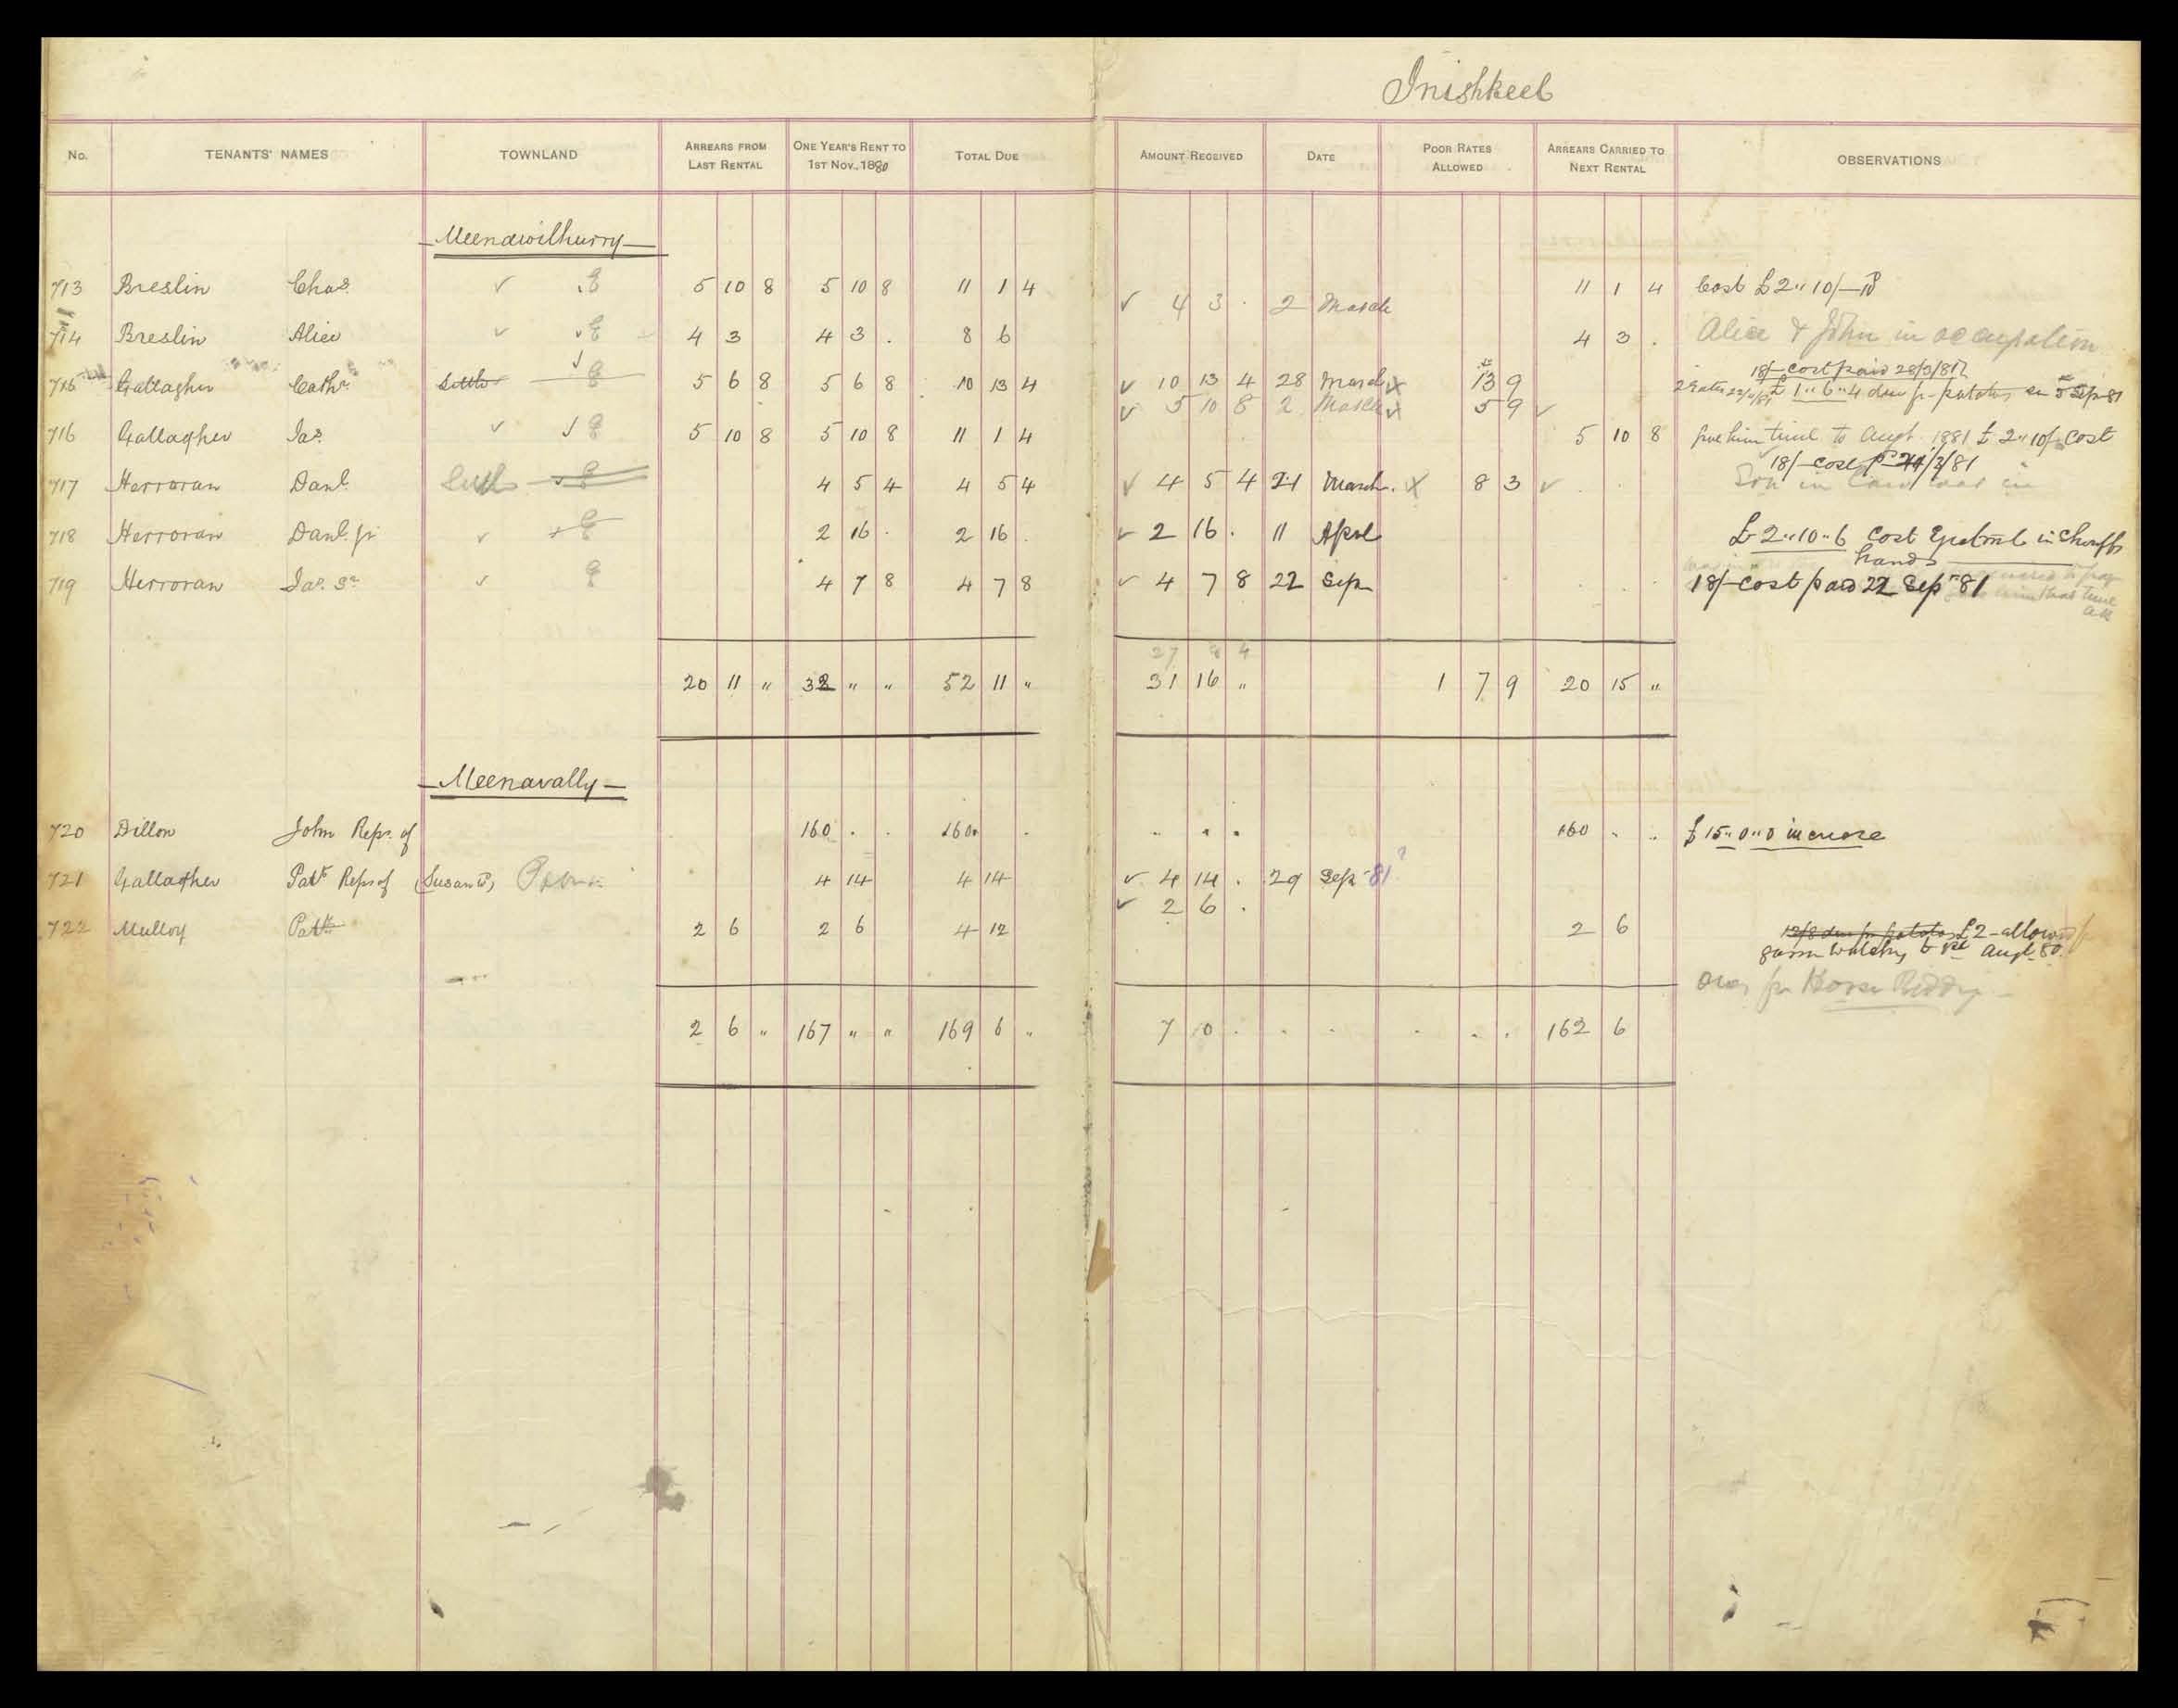 Inishkeel
No. TENANTS' NAMES TOWNLAND ARREARS FROM LAST RENTAL ONE YEAR'S RENT TO 1ST NOV., 1880 TOTAL DUE AMOUNT RECEIVED DATE POOR RATES ALLOWED ARREARS CARRIED TO NEXT RENTAL OBSERVATIONS
Meenawilhurry
713 Breslin Chas. 5 10 8 5 10 8 11 1 4 11 1 4 Cost £2"10/-
4 3 . 2 March
714 Breslin Alice 4 3 4 3 . 8 6 4 3 . Alice & John in occupation
18/- cost paid 28/3/81
715 Gallagher Cathe. 5 6 8 5 6 8 10 13 4 10 13 4 28 March 13 9 £1"6"4 due for potatoes
5 10 8 2 March 5 9
716 Gallagher Jas. 5 10 8 5 10 8 11 1 4 5 10 8 give him time to Augt. 1881 £2"10/- cost
717 Herroran Danl. 4 5 4 4 5 4 4 5 4 21 March. 8 3 18/- cost
718 Herroran Danl. jr 2 16 . 2 16 . 2 16 . 11 April £2"10"6 cost
hands
719 Herroran Jas. Sr 4 7 8 4 7 8 4 7 8 22 Sep 18/- cost paid 22 Sep 81
27 8 4
20 11 " 32 " " 52 11 " 31 16 " 1 7 9 20 15 "
Meenavally
720 Dillon John Reps. of 160 . . 160 . . . . . 160 . . £15"0"0 increase
721 Gallagher Patk Reps of (Susan 4 14 4 14 4 14 . 29 Sep 81
2 6 .
722 Mulloy Patk 2 6 2 6 4 12 2 6 £2 - allowed
Augt. 80.
2 6 " 167 " " 169 6 . 7 0 . . . . . . 162 6